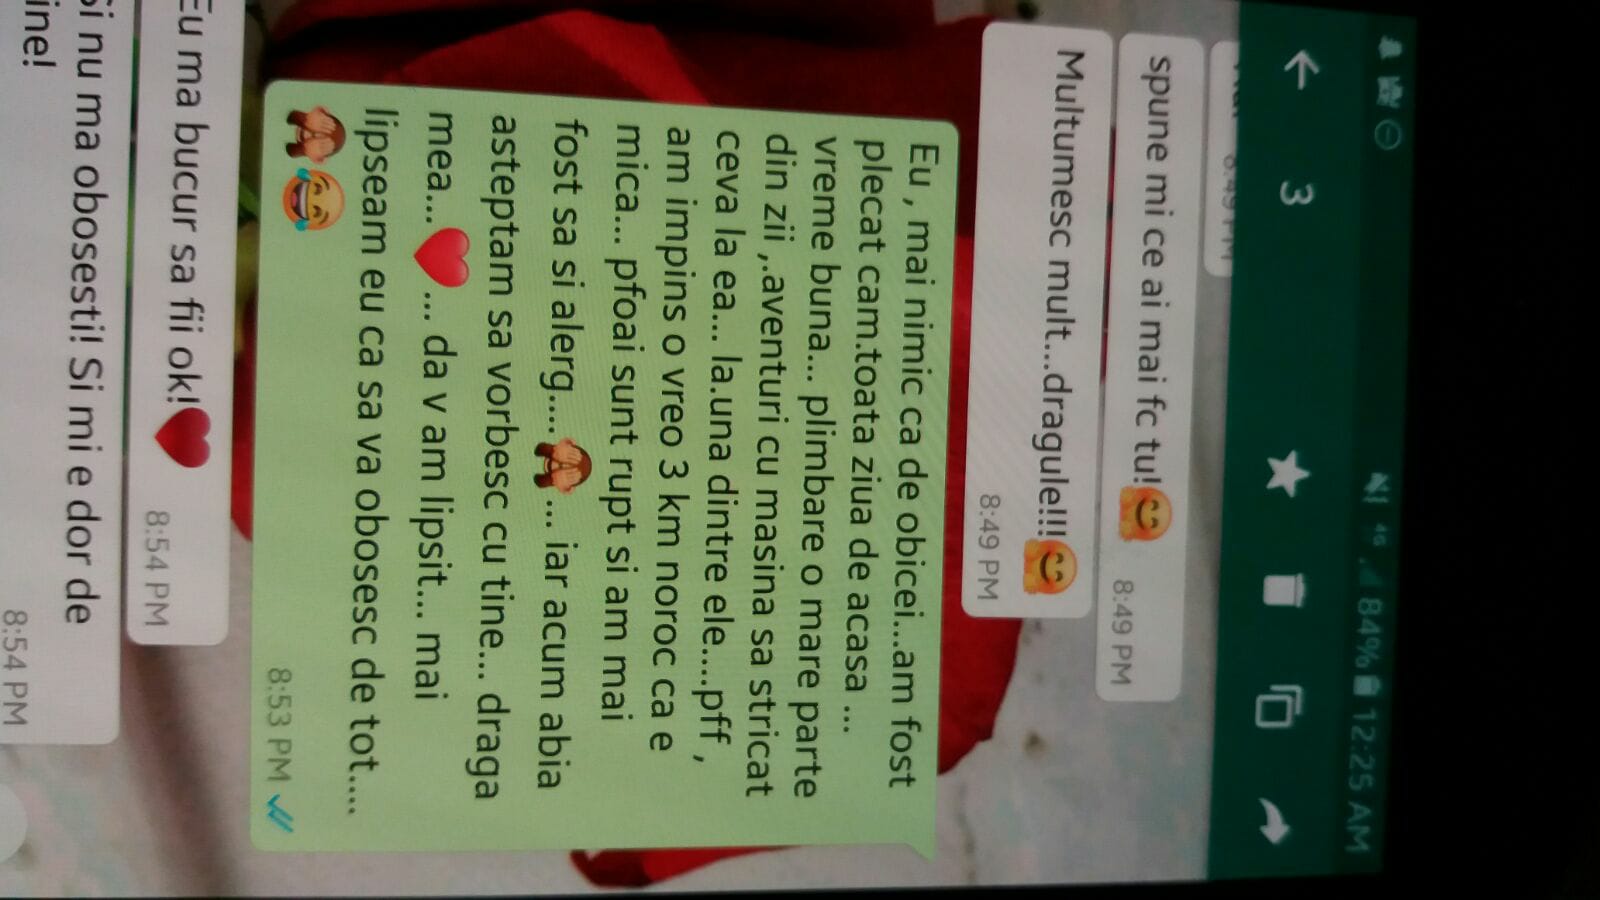 84% 12:25 AM
4G
3
8:49 PM
spune mi ce ai mai fc tu!🤗
8:49 PM
Multumesc mult...dragule!!!🤗
8:49 PM
Eu , mai nimic ca de obicei...am fost
plecat cam.toata ziua de acasa ...
vreme buna... plimbare o mare parte
din zii ,.aventuri cu masina sa stricat
ceva la ea... la.una dintre ele....pff ,
am impins o vreo 3 km noroc ca e
mica... pfoai sunt rupt si am mai
fost sa si alerg....🙈... iar acum abia
asteptam sa vorbesc cu tine... draga
mea...❤... da v am lipsit... mai
lipseam eu ca sa va obosesc de tot....
🙈😂
8:53 PM
Eu ma bucur sa fii ok!❤
8:54 PM
Si nu ma obosesti! Si mi e dor de
ine!
8:54 PM